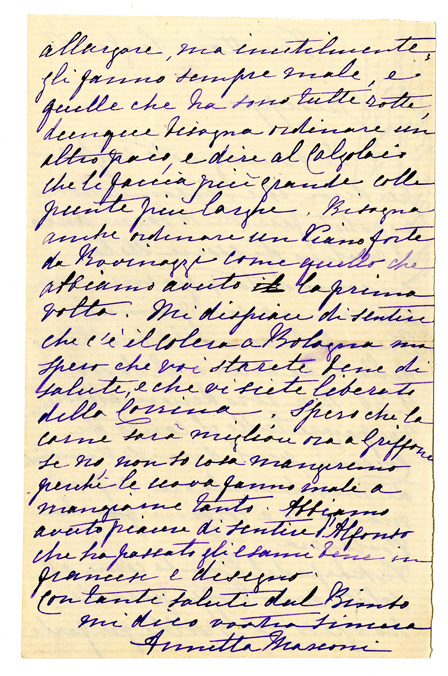 allargare, ma inutilmente;
gli fanno sempre male, e
quelle che ha sono tutte rotte,
dunque bisogna ordinare un
altro paio, e dire al Calzolaio
che le faccia più grande colle
punte più larghe. Bisogna
anche ordinare un Piano forte
da Bovinazzi come quello che
abbiamo avuto la prima
volta. Mi dispiace di sentire
che c'è il colera a Bologna ma
spero che voi starete bene di
salute, e che vi siete liberato
della Corrina. Spero che la
carne sarà migliore ora a Griffone
se no, non so cosa mangeremo
perché le uova fanno male a
mangiarne tanto. Abbiamo
avuto piacere di sentire d'Alfonso
che ha passato gli esami bene in
francese e disegno.
Con tanti saluti dal Bimbo
mi dico vostra
Annetta Marconi